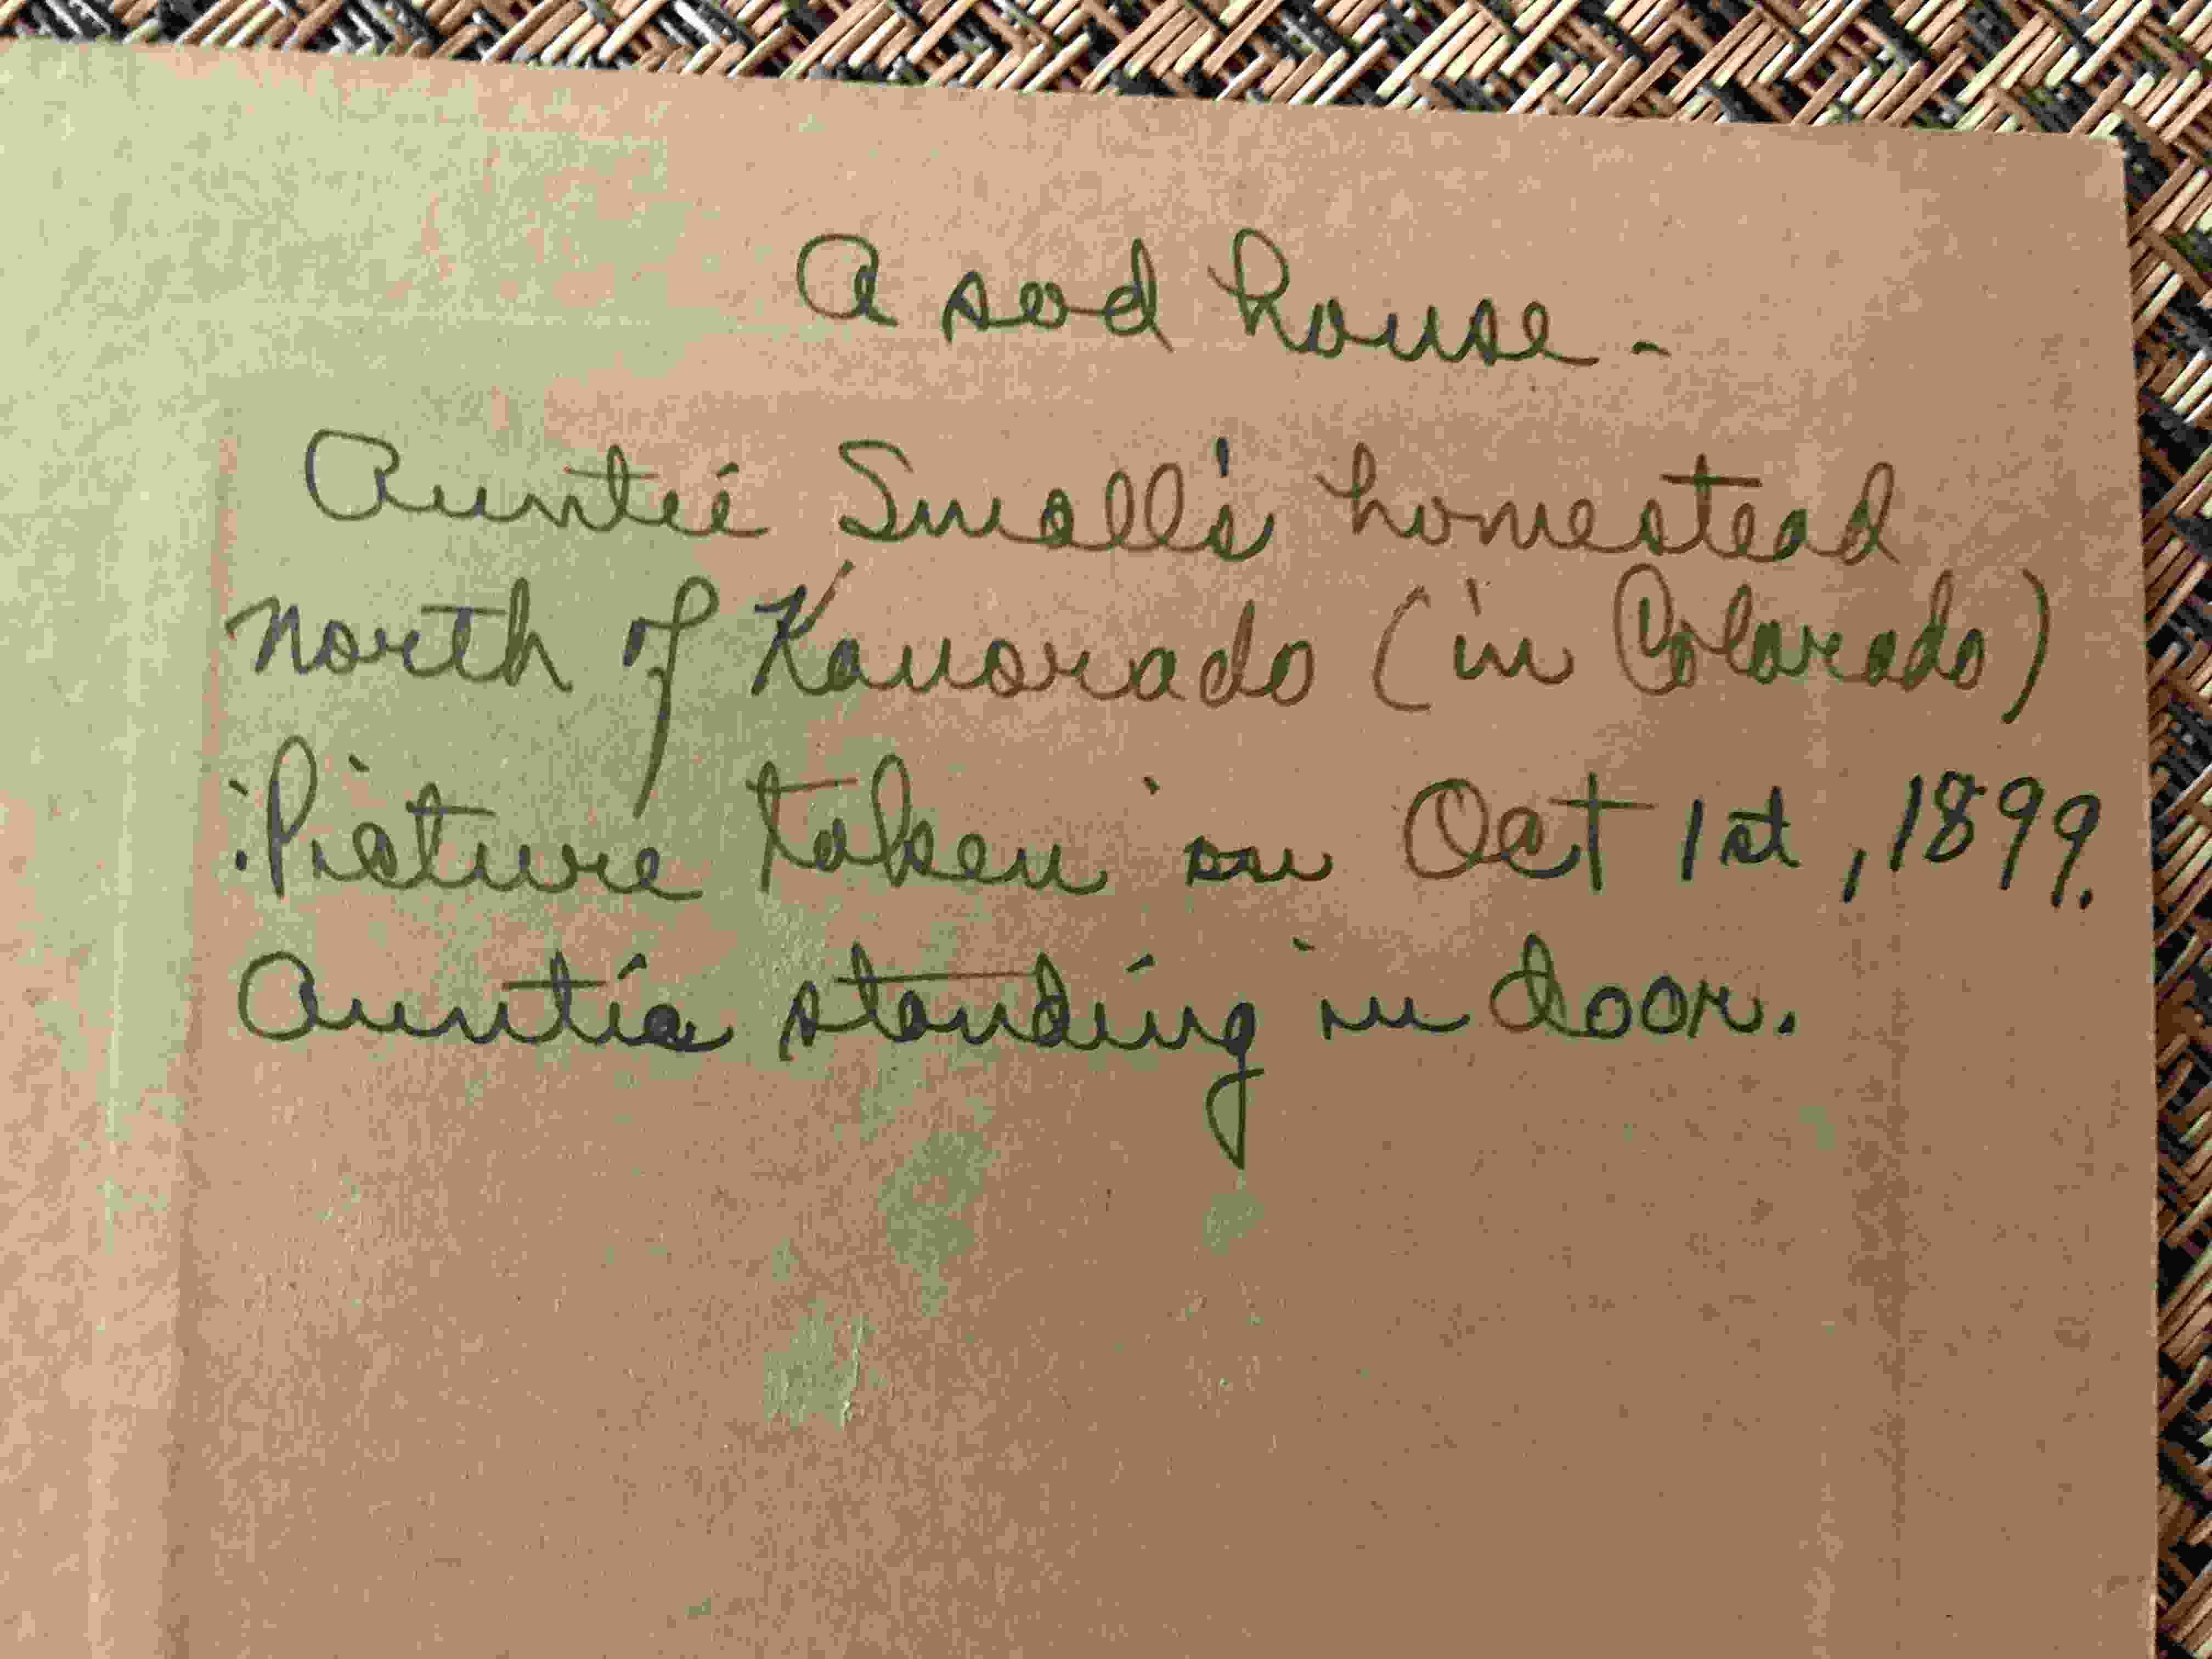 A sod house -
Auntie Small's homestead
north of Kanorado (in Colorado)
Picture taken on Oct 1st, 1899.
Auntie standing in door.